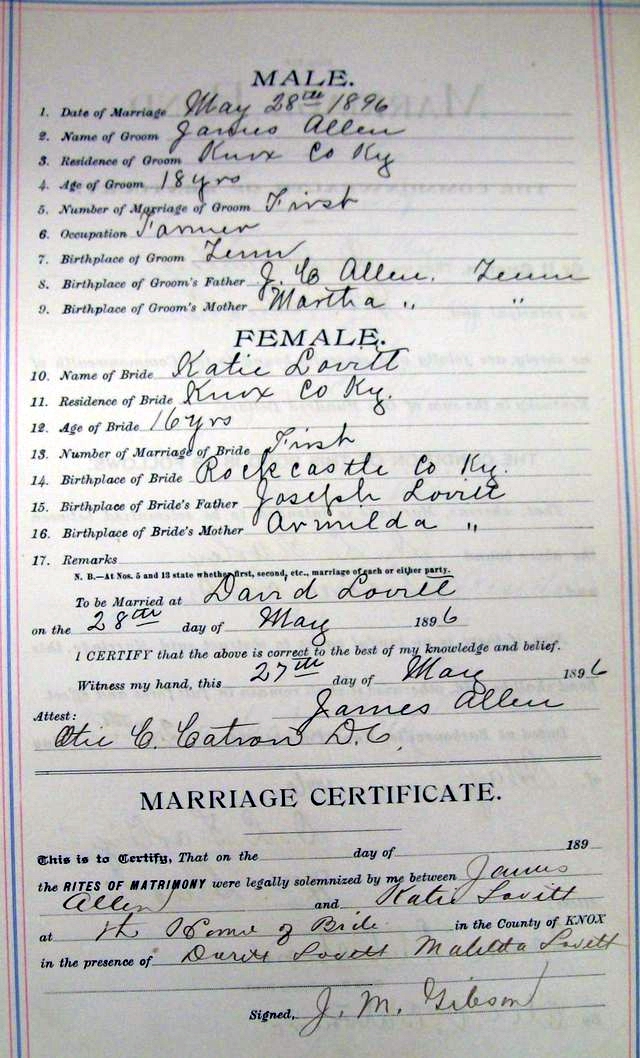 MALE.
1. Date of Marriage May 28th 1896
2. Name of Groom James Allen
3. Residence of Groom Knox Co Ky
4. Age of Groom 18 yrs
5. Number of Marriage of Groom First
6. Occupation Farmer
7. Birthplace of Groom Tenn
8. Birthplace of Groom's Father J. C Allen. Tenn
9. Birthplace of Groom's Mother Martha " "
FEMALE.
10. Name of Bride Katie Lovitt
11. Residence of Bride Knox Co Ky.
12. Age of Bride 16 yrs
13. Number of Marriage of Bride First
14. Birthplace of Bride Rockcastle Co Ky.
15. Birthplace of Bride's Father Joseph Lovitt
16. Birthplace of Bride's Mother Armilda "
17. Remarks
N. B.—At Nos. 5 and 13 state whether first, second, etc., marriage of each or either party.
To be Married at David Lovitt
on the 28th day of May 1896
I CERTIFY that the above is correct to the best of my knowledge and belief.
Witness my hand, this 27th day of May 1896
James Allen
Attest:
C. Catron D.C.
MARRIAGE CERTIFICATE.
This is to Certify, That on the day of 189
the RITES OF MATRIMONY were legally solemnized by me between James
Allen and Katie Lovitt
at th Home of Bride in the County of KNOX
in the presence of Lovitt Lovitt
Signed, J. M. Gibson